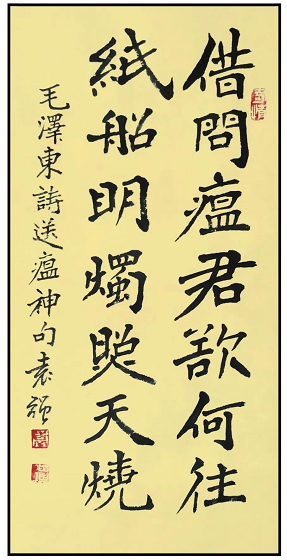 借問瘟君欲何往
紙船明燭照天燒
毛澤東詩送瘟神句袁强